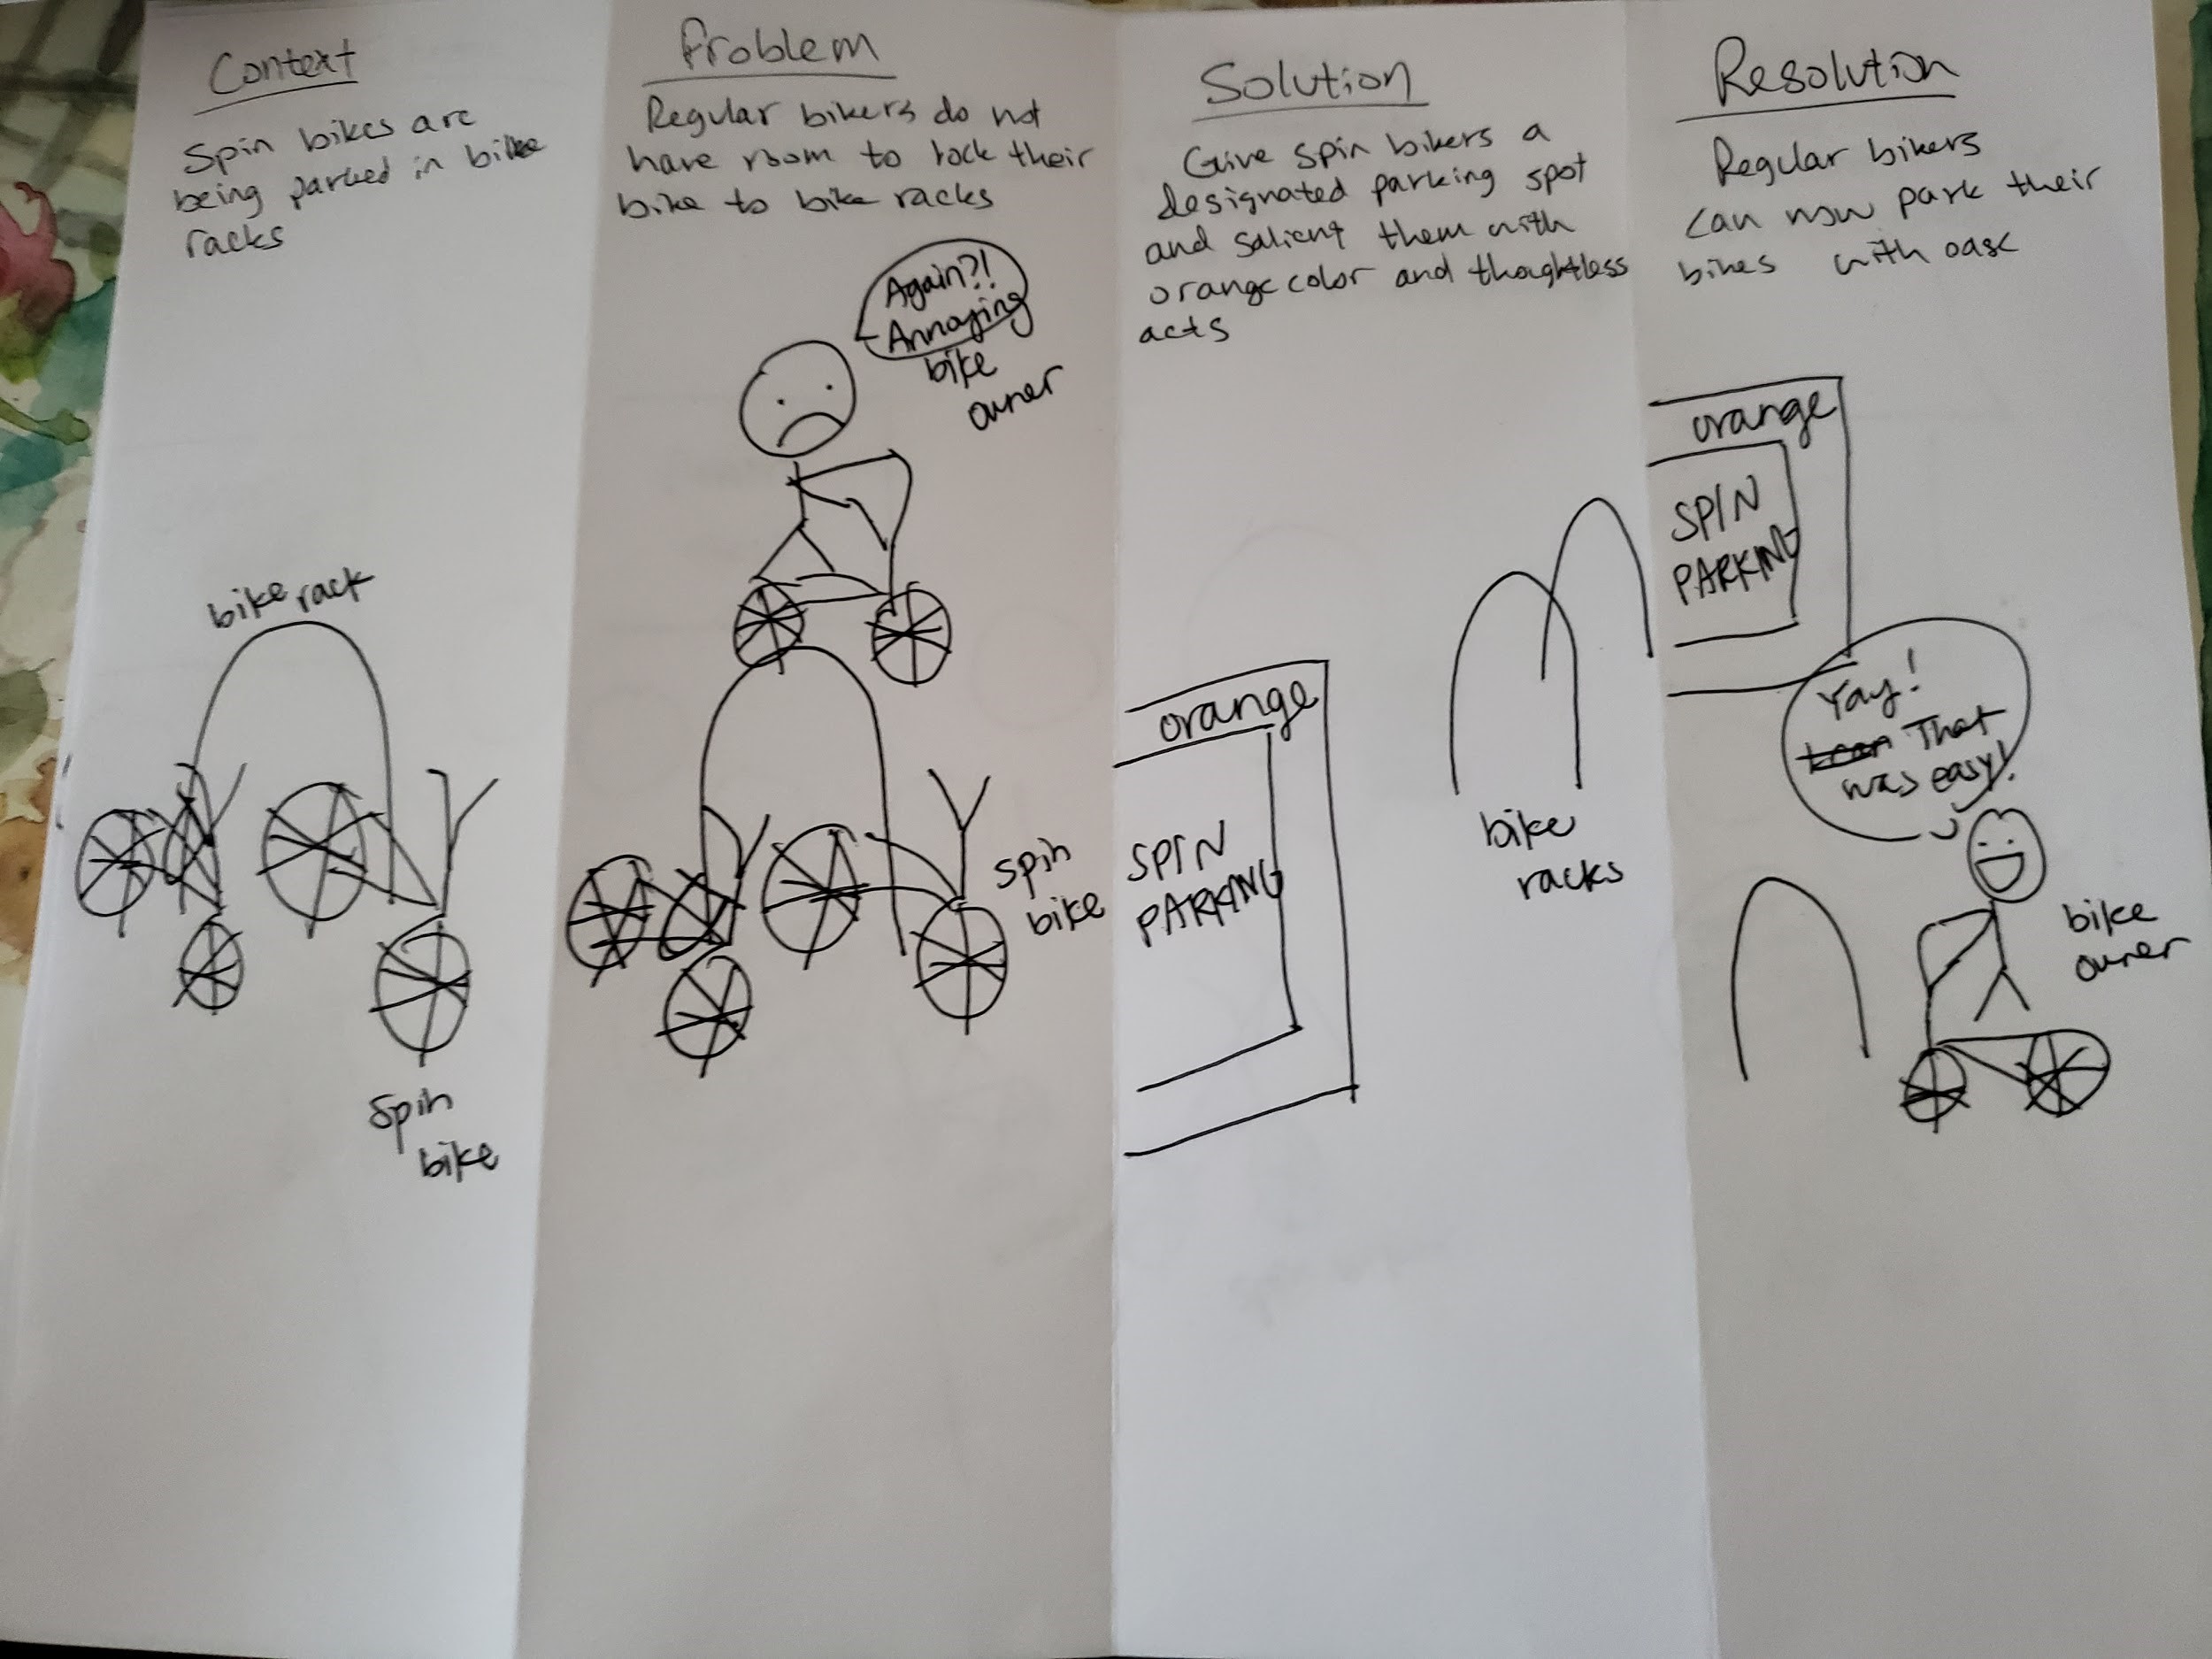 Context
Spin bikes are
being parked in bike
racks
bike rack
Spin
bike
Problem
Regular bikers do not
have room to lock their
bike to bike racks
Again?!
Annoying
bike
owner
spin
bike
Solution
Give spin bikers a
designated parking spot
and salient them with
orange color and thoghtless
acts
orange
SPIN
PARKING
bike
racks
Resolution
Regular bikers
can now park their
bikes with ease
orange
SPIN
PARKING
Yay!
That
was easy!
bike
owner